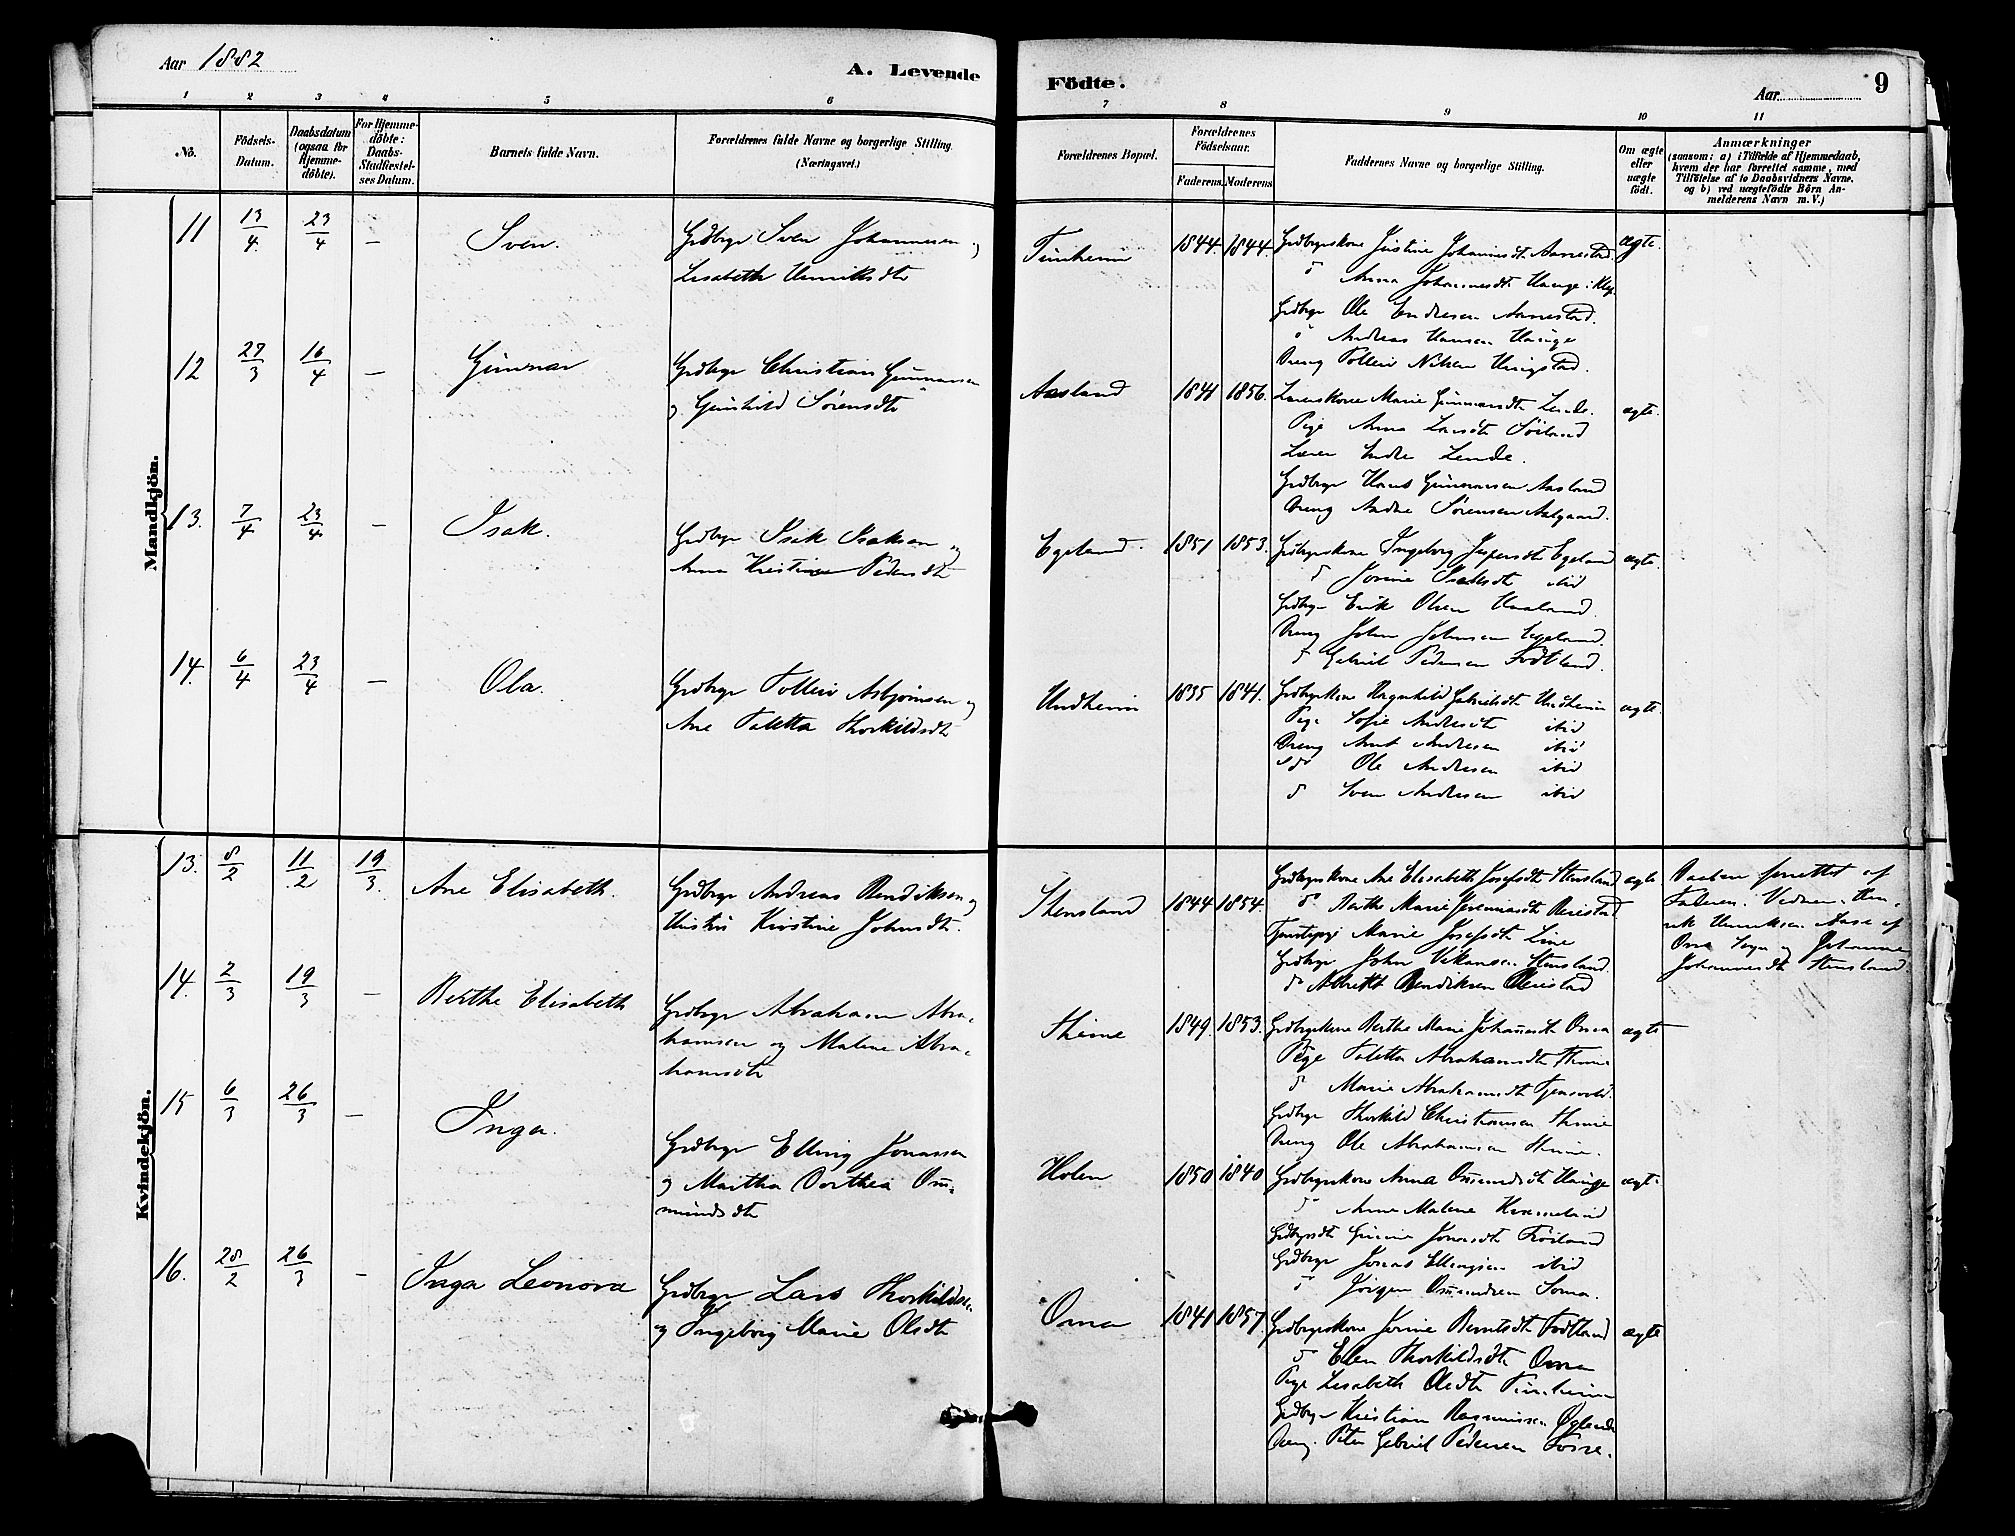 Aar 1882
A. Levende
Födte.
Aar
9
1 2 3 4 5 6 7 8 9 10 11
No.
Födsels-Datum.
Daabsdatum (ogsaa for Hjemme-döbte).
For Hjemme-döbte: Daabs-Stadfæstel-ses Datum.
Barnets fulde Navn.
Forældrenes fulde Navne og borgerlige Stilling.
(Næringsvei.)
Forældrenes Bopæl.
Forældrenes Födselsaar.
Faderens. Moderens.
Faddernes Navne og borgerlige Stilling.
Om ægte eller uægte födt.
Anmærkninger
(saasom: a) i Tilfælde af Hjemmedaab,
hvem der har forrettet samme, med
Tilföielse af to Daabsvidners Navne.
og b) ved uægtefödte Börn An-
melderens Navn m. V.)
Mandkjön.
11 13/4 23/4 – Sven.
Grdbrgr Sven Johannesen og
Lisabeth Henriksdtr
Tunheim 1844. 1844.
Grdbrgrskone Justine Johannesdtr Aanestad. ægte.
do Anna Johannesdtr Hauge i Klep.
Grdbrgr Ole Endresen Aanestad.
do Andreas Hansen Hauge
Dreng Tolleiv Nilsen Ungstad.
12 27/3 16/4 – Gunnar
Grdbrgr Christian Gunnarsen
og Gunhild Sörensdtr
Aasland 1841 1856.
Lærerskone Marie Gunnarsdtr Lende. ægte.
Pige Anna Larsdtr Söiland
Lærer Endre Lende.
Grdbrgr Hans Gunnarsen Aasland
Dreng Andre Sörensen Aalgaard.
13. 7/4 23/4 – Isak.
Grdbrgr Isak Isaksen og
Anna Kristine Pedersdtr
Egeland. 1851 1853.
Grdbrgrskone Ingeborg Jespersdtr Egeland ægte.
do Jorine Isaksdtr ibid
Grdbrgr Erik Olsen Haaland.
Dreng John Johnsen Egeland.
do Gabriel Pedersen Fodtland.
14. 6/4 23/4 – Ola.
Grdbrgr Tolleiv Asbjörnsen og
Ane Taletta Thorkildsdtr
Undheim 1835 1841.
Grdbrgrskone Ragnhild Gabrielsdtr Undheim ægte.
Pige Sofie Andresdtr ibid
Dreng Arnt Andresen ibid
do Ole Andresen ibid
do Sven Andresen ibid
Kvindekjön.
13. 8/2 11/2 19/3. Ane Elisabeth.
Grdbrgr Andreas Bendiksen og
Hustru Kirstine Johnsdtr.
Stensland 1844 1854.
Grdbrgrskone Ane Elisabeth Josefsdtr Stensland ægte
do Berthe Marie Jeremiasdtr Reiestad
Tjenestepige Marie Josefsdtr Line
Grdbrgr John Stensland.
do Albrekt Bendiksen Reiestad
Daaben forrettet af
Faderen. Vidner: Hen-
rik Henriksen Aase af
Ome Sogn og Johanne
Johannesdtr Stensland.
14. 2/3 19/3 – Berthe Elisabeth
Grdbrgr Abraham Abra-
hamsen og Malene Abra-
hamsdtr
Thime 1849. 1853.
Grdbrgrskone Berthe Marie Johannesdtr Oma ægte
Pige Taletta Abrahamsdtr Thime
do Marie Abrahamsdtr Tjensvold.
Grdbrgr Thorkild Christiansen Thime
Dreng Ole Abrahamsen Thime.
15 6/3 26/3 – Inga.
Grdbrgr Elling Jonassen
og Martha Dorthea Om-
mundsdtr
Holen 1850 1840
Grdbrgrskone Anna Ommundsdtr Hauge ægte
do Anne Malene Kverneland
Grdbrgrsdtr Gurine Jonasdtr Fröiland
Grdbrgr Jonas Ellingsen ibid
do Jörgen Ommundsen Soma.
16. 28/2 26/3 – Inga Leonora
Grdbrgr Lars Thorkildsen
og Ingeborg Marie Olsdtr
Oma 1841 1857.
Grdbrgrskone Jorine Berntsdtr Fodtland ægte
do Ellen Thorkildsdtr Oma
Pige Lisabeth Olsdtr Tunheim
Grdbrgr Kristian Rasmussen Öglende
Dreng. Peter Gabriel Pedersen Fosse.